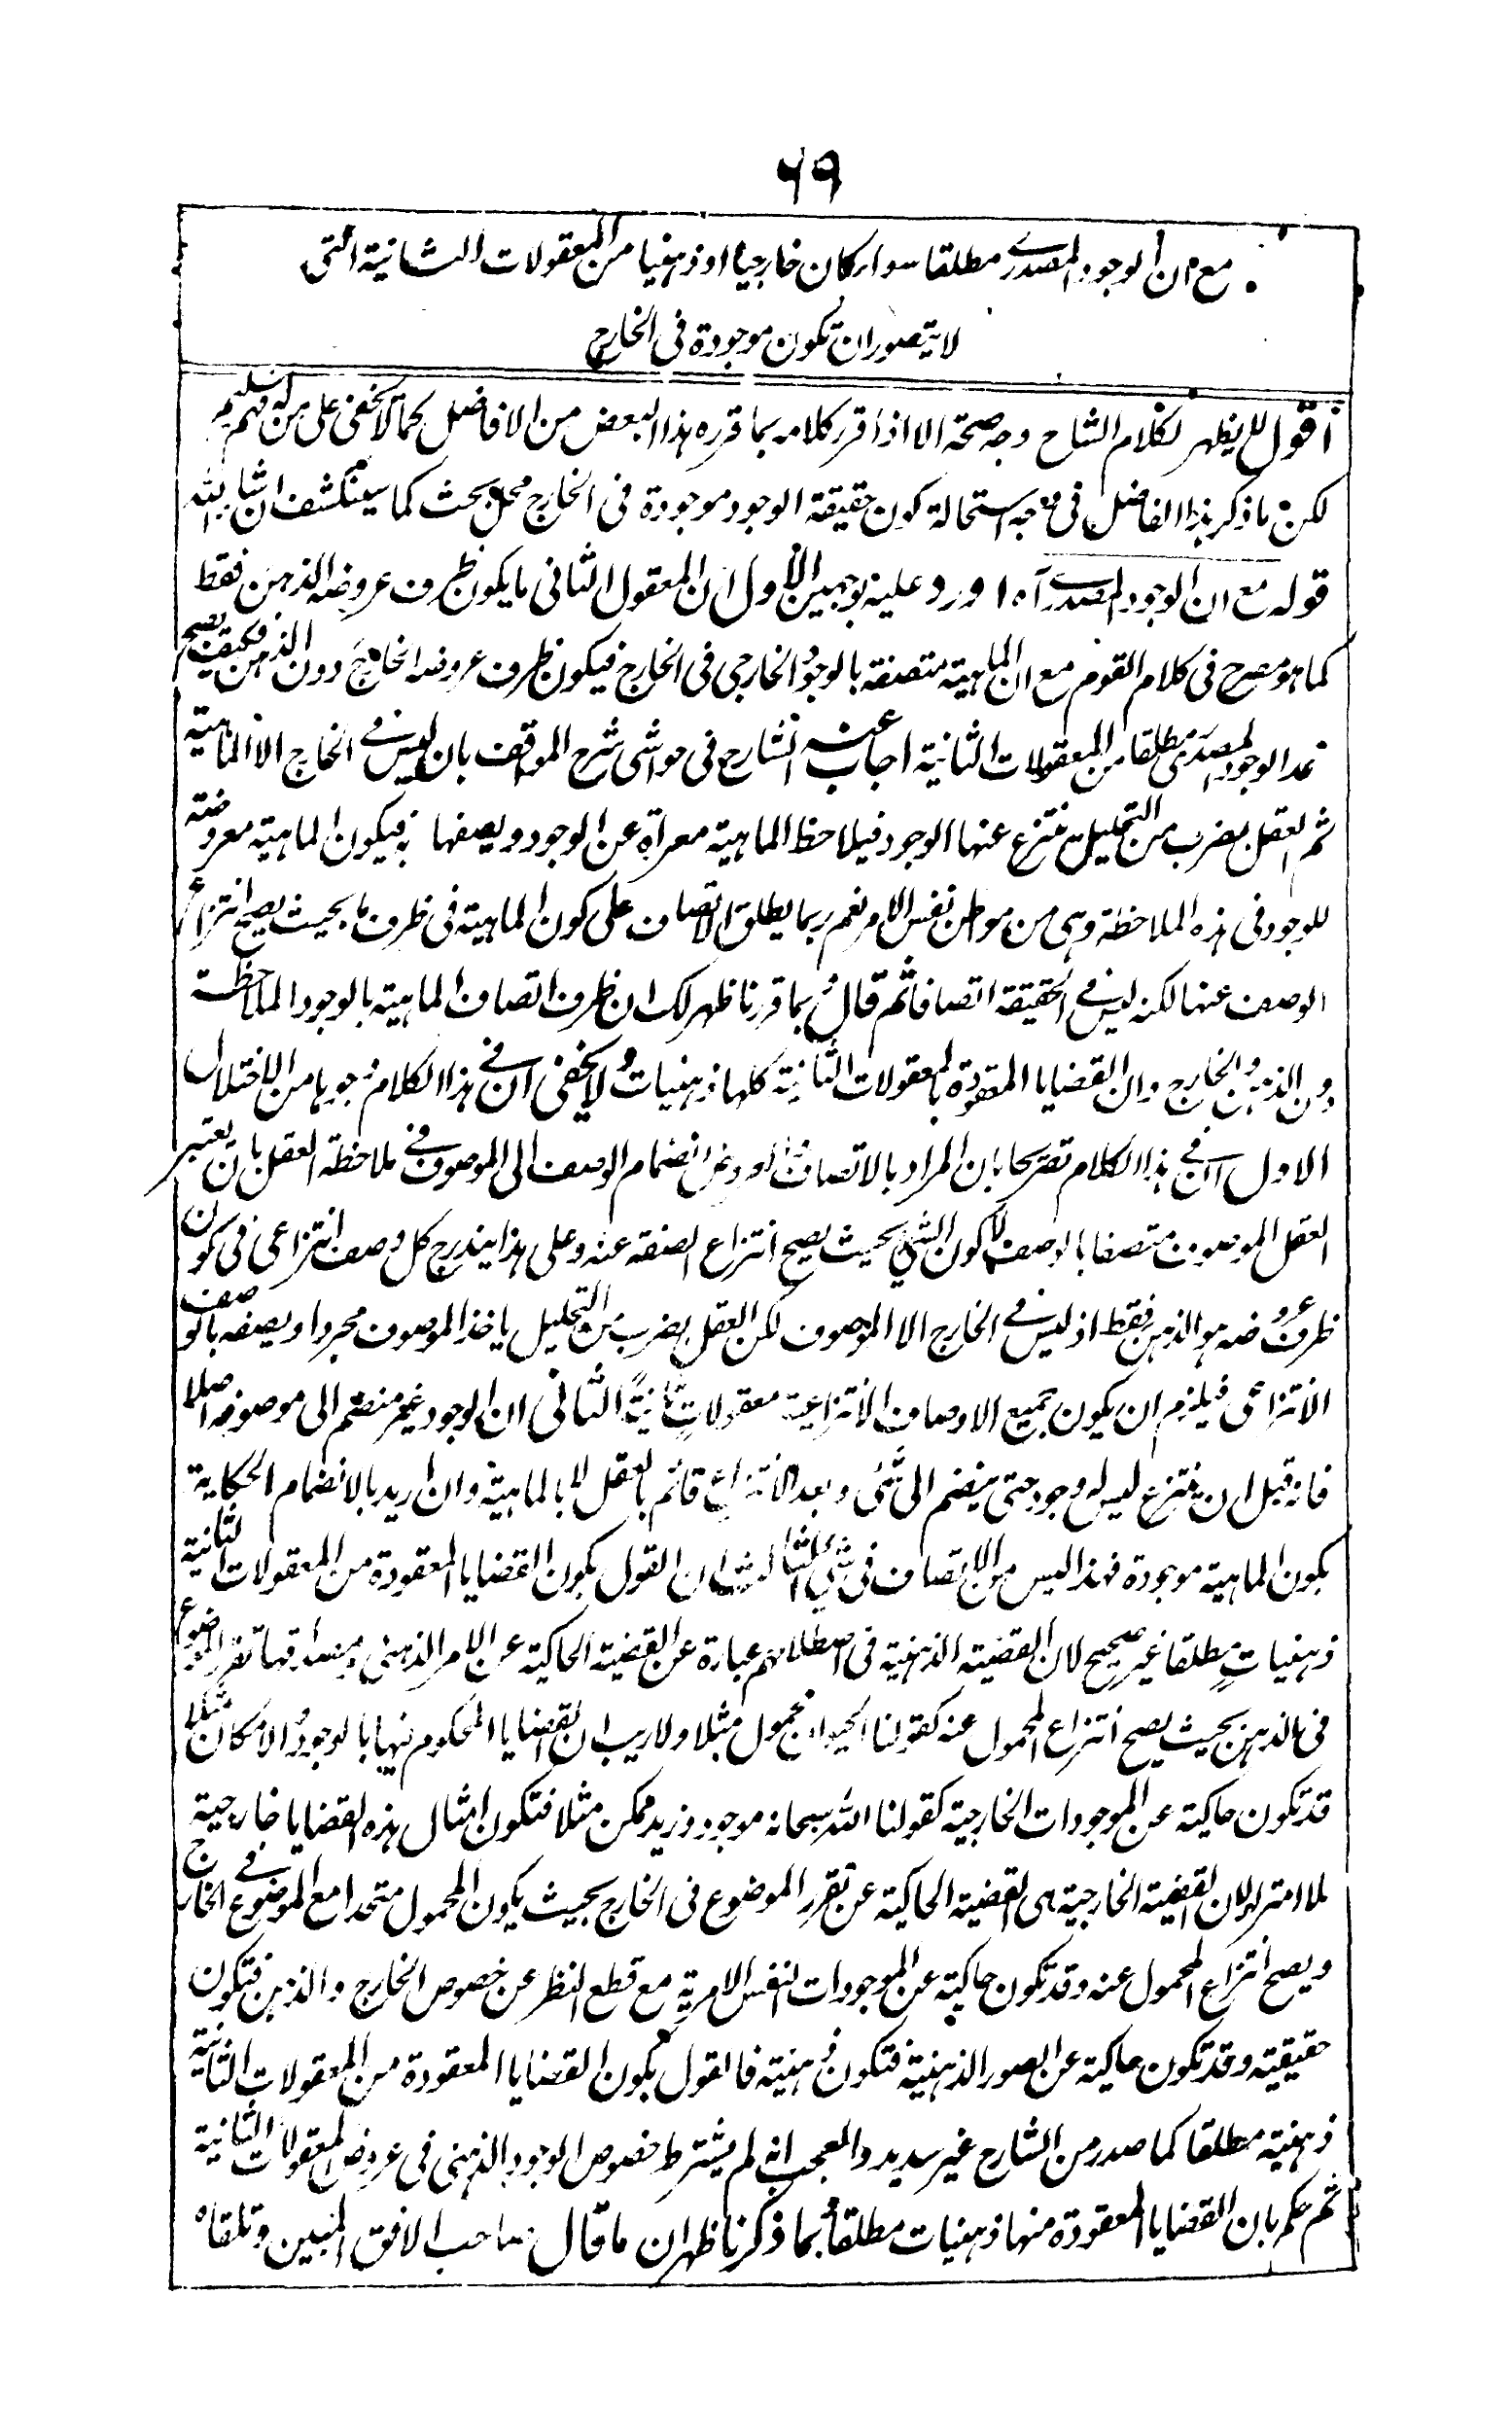 ٦٩
مع ان الوجود المصدرے مطلقا سواء كان خارجيا او ذهنيا من المعقولات الثانية التى
لا يتصور ان تكون موجودة فى الخارج
اقول لا يظهر لكلام الشارح وجه صحة الا اذا قرر كلامه بما قرره هذا البعض من الافاضل كما لا يخفى على من له فهم سليم
لكن ما ذكر هذا الفاضل فى وجه استحالة كون حقيقة الوجود موجودة فى الخارج محل بحث كما سينكشف ان شاء الله
قوله مع ان الوجود المصدرے آه اورد عليه بوجهين الاول ان المعقول الثانى ما يكون ظرف عروضه الذهن فقط
كما هو مصرح فى كلام القوم مع ان الماهية متصفة بالوجود الخارجى فى الخارج فيكون ظرف عروضه الخارج دون الذهن فكيف يصح
عد الوجود المصدرى مطلقا من المعقولات الثانية اجاب عنه الشارح فى حواشى شرح المواقف بان ليس فے الخارج الا الماهية
ثم العقل بضرب من التحليل ينتزع عنها الوجود فيلاحظ الماهية معراة عن الوجود ويصفها به فيكون الماهية معروضة
للوجود فى هذه الملاحظة وهى من مواطن نفس الامر نعم ربما يطلق الاتصاف على كون الماهية فى ظرف ما بحيث يصح انتزاع
الوصف عنها لكنه ليس فے الحقيقة اتصافا ثم قال وبما قررنا ظهر لك ان ظرف اتصاف الماهية بالوجود الملاحظة
دون الذهن والخارج وان القضايا المعقودة بالمعقولات الثانية كلها ذهنيات ولا يخفى ان فے هذا الكلام وجوها من الاختلال
الاول ان فے هذا الكلام تصريحا بان المراد بالاتصاف والعروض انضمام الوصف الى الموصوف فے ملاحظة العقل بان يعتبر
العقل الموصوف متصفا بالوصف لا كون الشئ بحيث يصح انتزاع الصفة عنه وعلى هذا يندرج كل وصف انتزاعى فى كون
ظرف عروضه هو الذهن فقط اذ ليس فے الخارج الا الموصوف لكن العقل بضرب من التحليل ياخذ الموصوف مجردا ويصفه بالوصف
الانتزاعى فيلزم ان يكون جميع الاوصاف الانتزاعية معقولات ثانية الثانى ان الوجود غير منضم الى موصوفه اصلا
فانه قبل ان ينتزع ليس له وجود حتى ينضم الى شئ وبعد الانتزاع قائم بالعقل لا بالماهية وان اريد بالانضمام الحكاية
بكون الماهية موجودة فهذا ليس من الاتصاف فى شئ الثالث ان القول بكون القضايا المعقودة من المعقولات الثانية
ذهنيات مطلقا غير صحيح لان القضية الذهنية فى اصطلاحهم عبارة عن القضية الحاكية عن الامر الذهنى ومصداقها تقرر الموضوع
فى الذهن بحيث يصح انتزاع المحمول عنه كقولنا الحيوان محمول مثلا ولا ريب ان القضايا المحكوم فيها بالوجود والامكان مثلا
قد تكون حاكية عن الموجودات الخارجية كقولنا الله سبحانه موجود وزيد ممكن مثلا فتكون امثال هذه القضايا خارجية
بلا امتراء لان القضية الخارجية هى القضية الحاكية عن تقرر الموضوع فى الخارج بحيث يكون المحمول متحدا مع الموضوع فے الخارج
ويصح انتزاع المحمول عنه وقد تكون حاكية عن الموجودات النفس الامرية مع قطع النظر عن خصوص الخارج والذهن فتكون
حقيقية وقد تكون حاكية عن الصور الذهنية فتكون ذهنية فالقول بكون القضايا المعقودة من المعقولات الثانية
ذهنية مطلقا كما صدر من الشارح غير سديد والعجب انه لم يشترط خصوص الوجود الذهنى فى عروض المعقولات الثانية
ثم حكم بان القضايا المعقودة منها ذهنيات مطلقا وبما ذكرنا ظهر ان ما قال صاحب الافق المبين وتلقاه